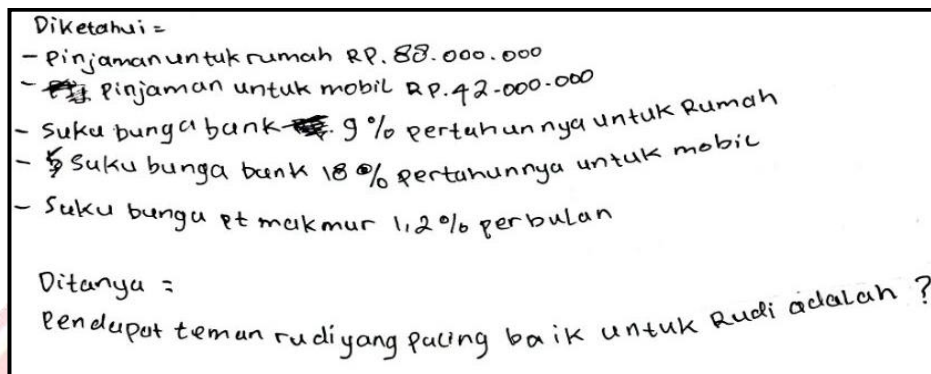 Diketahui =
- Pinjaman untuk rumah RP. 88.000.000
- Pinjaman untuk mobil RP. 42.000.000
- Suku bunga bank 9% pertahunnya untuk Rumah
- Suku bunga bank 18% pertahunnya untuk mobil
- Suku bunga pt makmur 1,2% perbulan
Ditanya =
Pendapat teman rudi yang paling baik untuk Rudi adalah ?